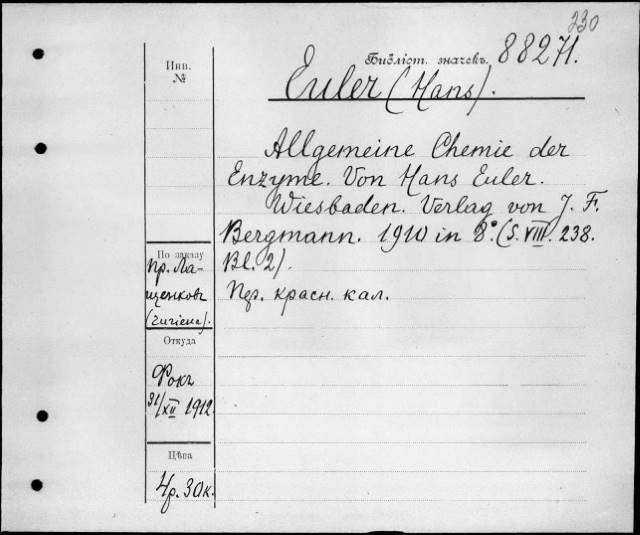 230
Библіот. значекъ. 88271.
Инв.
№
Euler (Hans).
Allgemeine Chemie der
Enzyme. Von Hans Euler.
Wiesbaden. Verlag von J. F.
Bergmann. 1910 in 8º. (S. VIII. 238.
Bl. 2).
По заказу
пр. Ла-
щенковъ
(гигіена).
кол. красн. кал.
Откуда
Фокъ
31/XII 1912
Цѣна
4р. 30к.